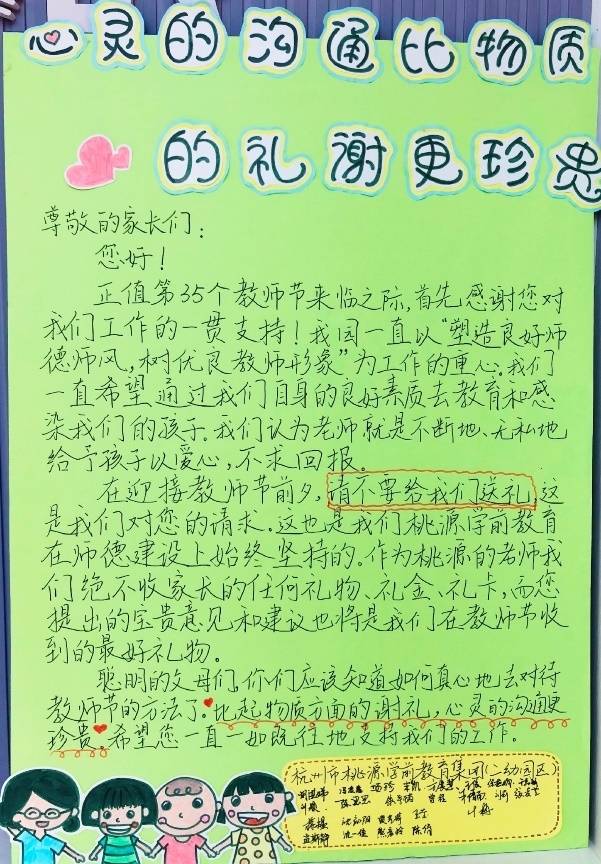 心灵的沟通比物质
的礼谢更珍贵
尊敬的家长们:
您好!
正值第35个教师节来临之际,首先感谢您对
我们工作的一贯支持!我园一直以“塑造良好师
德师风,树优良教师形象”为工作的重心。我们
一直希望通过我们自身的良好素质去教育和感
染我们的孩子。我们认为老师就是不断地、无私地
给予孩子以爱心,不求回报。
在迎接教师节前夕,请不要给我们送礼,这
是我们对您的请求。这也是我们桃源学前教育
在师德建设上始终坚持的。作为桃源的老师我
们绝不收家长的任何礼物、礼金、礼卡,而您
提出的宝贵意见和建议也将是我们在教师节收
到的最好礼物。
聪明的父母们,你们应该知道如何真心地去对待
教师节的方法了。比起物质方面的谢礼,心灵的沟通更
珍贵。希望您一直一如既往地支持我们的工作。
杭州市桃源学前教育集团(二幼园区)